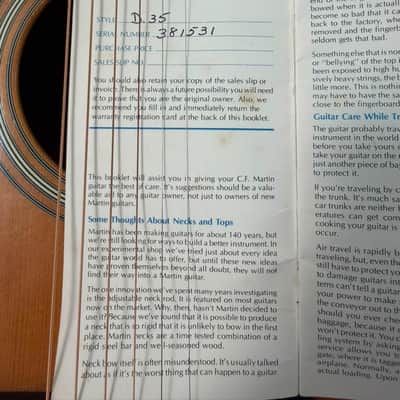 STYLE D. 35
SERIAL NUMBER 381531
PURCHASE PRICE
SALES SLIP NO.
You should also retain your copy of the sales slip or
invoice. There is always a future possibility you will need
it to prove that you are the original owner. Also, we
recommend you fill in and immediately return the
warranty registration card at the back of this booklet.
This booklet will assist you in giving your C.F. Martin
guitar the best of care. It's suggestions should be a valu-
able aid to any guitar owner, not just to owners of new
Martin guitars.
Some Thoughts About Necks and Tops
Martin has been making guitars for about 140 years, but
we're still looking for ways to build a better instrument. In
our experimental shop we've tried just about every idea
the guitar world has to offer, but until these new ideas
have proven themselves beyond all doubt, they will not
find their way into a Martin guitar.
The one innovation we've spent many years investigating
is the adjustable neck rod. It is featured on most guitars
now on the market. Why, then, hasn't Martin decided to
use it? Because we've found that it is possible to produce
a neck that is so rigid that it is unlikely to bow in the first
place. Martin necks are a time tested combination of a
rigid steel bar and well-seasoned wood.
Neck bow itself is often misunderstood. It's usually talked
about as if it's the worst thing that can happen to a guitar.
bowed when it is actuall
become so bad that it ca
back to the factory, whe
removed and the fingerb
seldom gets that bad.
Something else that is nor
or "bellying" of the top i
been exposed to high hu
sively heavy strings, the b
little more. This is nothin
may have to have the sa
close to the fingerboard
Guitar Care While Tr
The guitar probably trav
instrument in the world-
before you take yours o
take your guitar on the r
just another piece of bas
to protect it.
If you're traveling by c
the trunk. It's much sa
car trunks are neither h
eratures can get com
cooking your guitar is
occur.
Air travel is rapidly b
traveling, but, even the
still have to protect you
to damage guitars ins
tems can't tell a guitar
your power to make
the conveyor out to th
should you ever chec
baggage, because if
won't protect it. You c
ling system by asking
service allows you to
gate, where it is tagge
airplane. Normally, a
actual loading. Upon